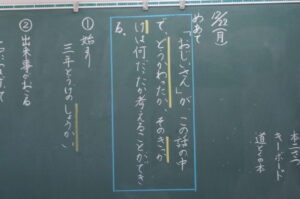 本二さつ
キーボード
道とくの本
(月)
めあて
「おじいさん」が、この話の中
で、どうかわったか、そのきっか
けは何だったか考えることができ
る。
① 始まり
三年とうげのしょうかい
② 出来事がおこる